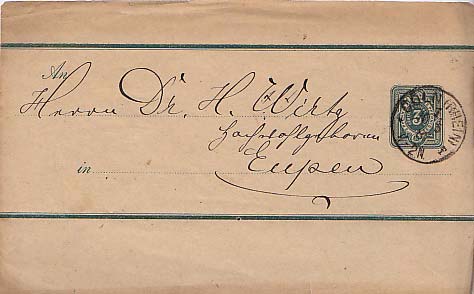 An
Herrn Dr. H. Wirtz
Hochwohlgeboren
in Eupen
3
(RHEIN)